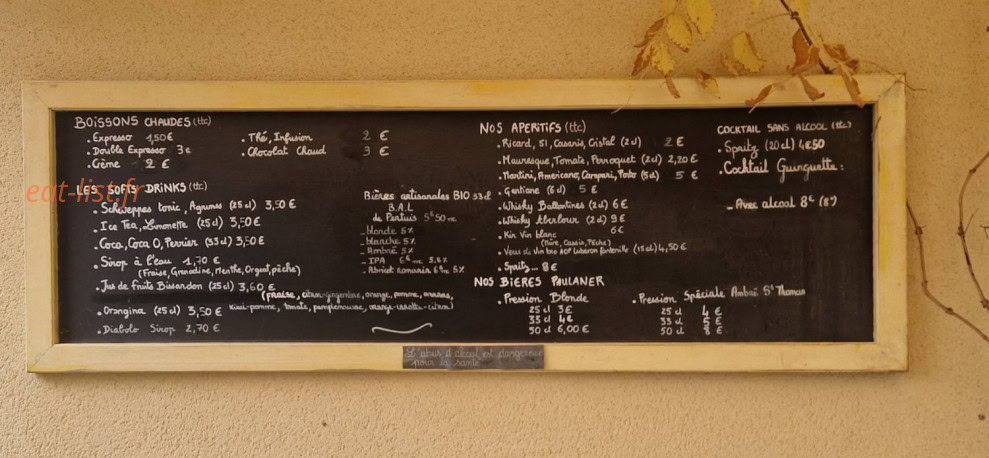 BOISSONS CHAUDES (ttc)
. Expresso 1,50 €
. Double Expresso 3 €
. Crème 2 €
. Thé, Infusion 2 €
. Chocolat Chaud 3 €
LES SOFTS DRINKS (ttc)
. Schweppes tonic, Agrumes (25 cl) 3,50 €
. Ice Tea, Limonette (25 cl) 3,50 €
. Coca, Coca O, Perrier (33 cl) 3,50 €
. Sirop à l'eau 1,70 €
(Fraise, Grenadine, Menthe, Orgeat, pèche)
. Jus de fruits Bissardon (25 cl) 3,60 €
(fraise, citron-gingembre, orange, pomme, ananas,
kiwi-pomme, tomate, pamplemousse, orange-carotte-citron)
. Orangina (25 cl) 3,50 €
. Diabolo Sirop 2,70 €
Bières artisanales BIO 33cl
B.A.L
de Pertuis 5€50 ttc
- blonde 5%
- blanche 5%
- Ambrée 5%
- IPA
- Abricot romarin 5%
NOS APERITIFS (ttc)
. Ricard, 51, Casanis, Cristal (2 cl) 2 €
. Mauresque, Tomate, Perroquet (2 cl) 2,20 €
. Martini, Americano, Campari, Porto (5 cl) 5 €
. Gentiane (6 cl) 5 €
. Whisky Ballantines (2 cl) 6 €
. Whisky Aberlour (2 cl) 9 €
. Kir Vin blanc 6€
(Mûre, Cassis, Pêche)
. Verre de Vin bio AOP Luberon fontenille (15 cl) 4,50 €
. Spritz... 8 €
NOS BIERES PAULANER
. Pression Blonde
25 cl 3€
33 cl 4€
50 cl 6,00 €
. Pression Spéciale Ambré St Thomas
25 cl 4 €
33 cl 5 €
50 cl 8 €
COCKTAIL SANS ALCOOL (ttc)
. Spritz (20 cl) 4€50
. Cocktail Guinguette :
- Avec alcool 8€
L'abus d'alcool est dangereux
pour la santé
eat-list.fr